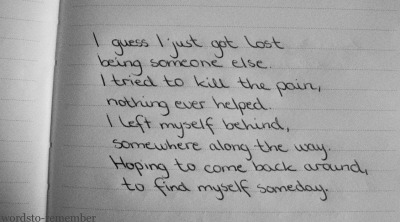 I guess I just got lost
being someone else.
I tried to kill the pain,
nothing ever helped.
I left myself behind,
somewhere along the way.
Hoping to come back around,
to find myself someday.
wordsto-remember